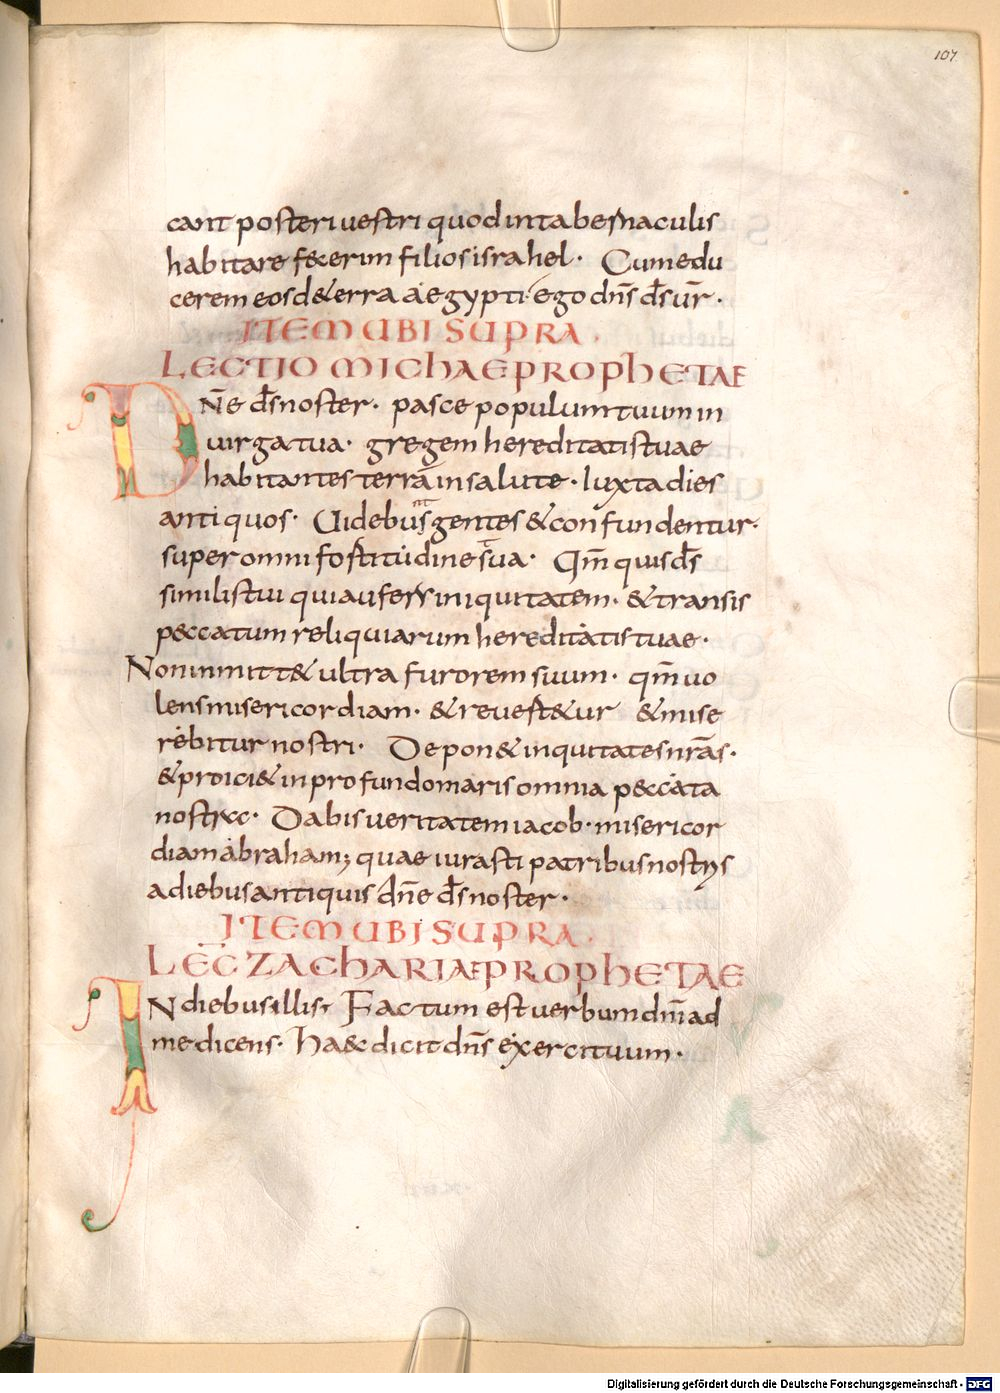 107
cant posteri uestri quod in tabernaculis
habitare fecerim filios israhel. Cum edu
cerem eos d&erra aegypti. ego dn̄s d̄s ur̄.
ITEM UBI SUPRA.
LECTIO MICHAE PROPHETAE
DN̄e d̄s noster. pasce populum tuum in
uirga tua. gregem hereditatis tuae
habitantes terrā in salute. Iuxta dies
antiquos. Uidebunt gentes & confundentur.
super omni fortitudine sua. Qm̄ quis d̄s
similis tui qui aufers iniquitatem. & transis
peccatum reliquiarum hereditatis tuae.
Non inmitt& ultra furorem suum. qm̄ uo
lens misericordiam. & reuert&ur & mise
rebitur nostri. Depon& inquitates nrās.
& proici& in profundo maris omnia peccata
nostra. Dabis ueritatem iacob. misericor
diam abraham; quae iurasti patribus nostris
a diebus antiquis dn̄e d̄s noster.
ITEM UBI SUPRA.
LEC̄ ZACHARIAE PROPHETAE
IN diebus illis, Factum est uerbum dn̄i ad
me dicens. Haec dicit dn̄s exercituum.
Digitalisierung gefördert durch die Deutsche Forschungsgemeinschaft - DFG